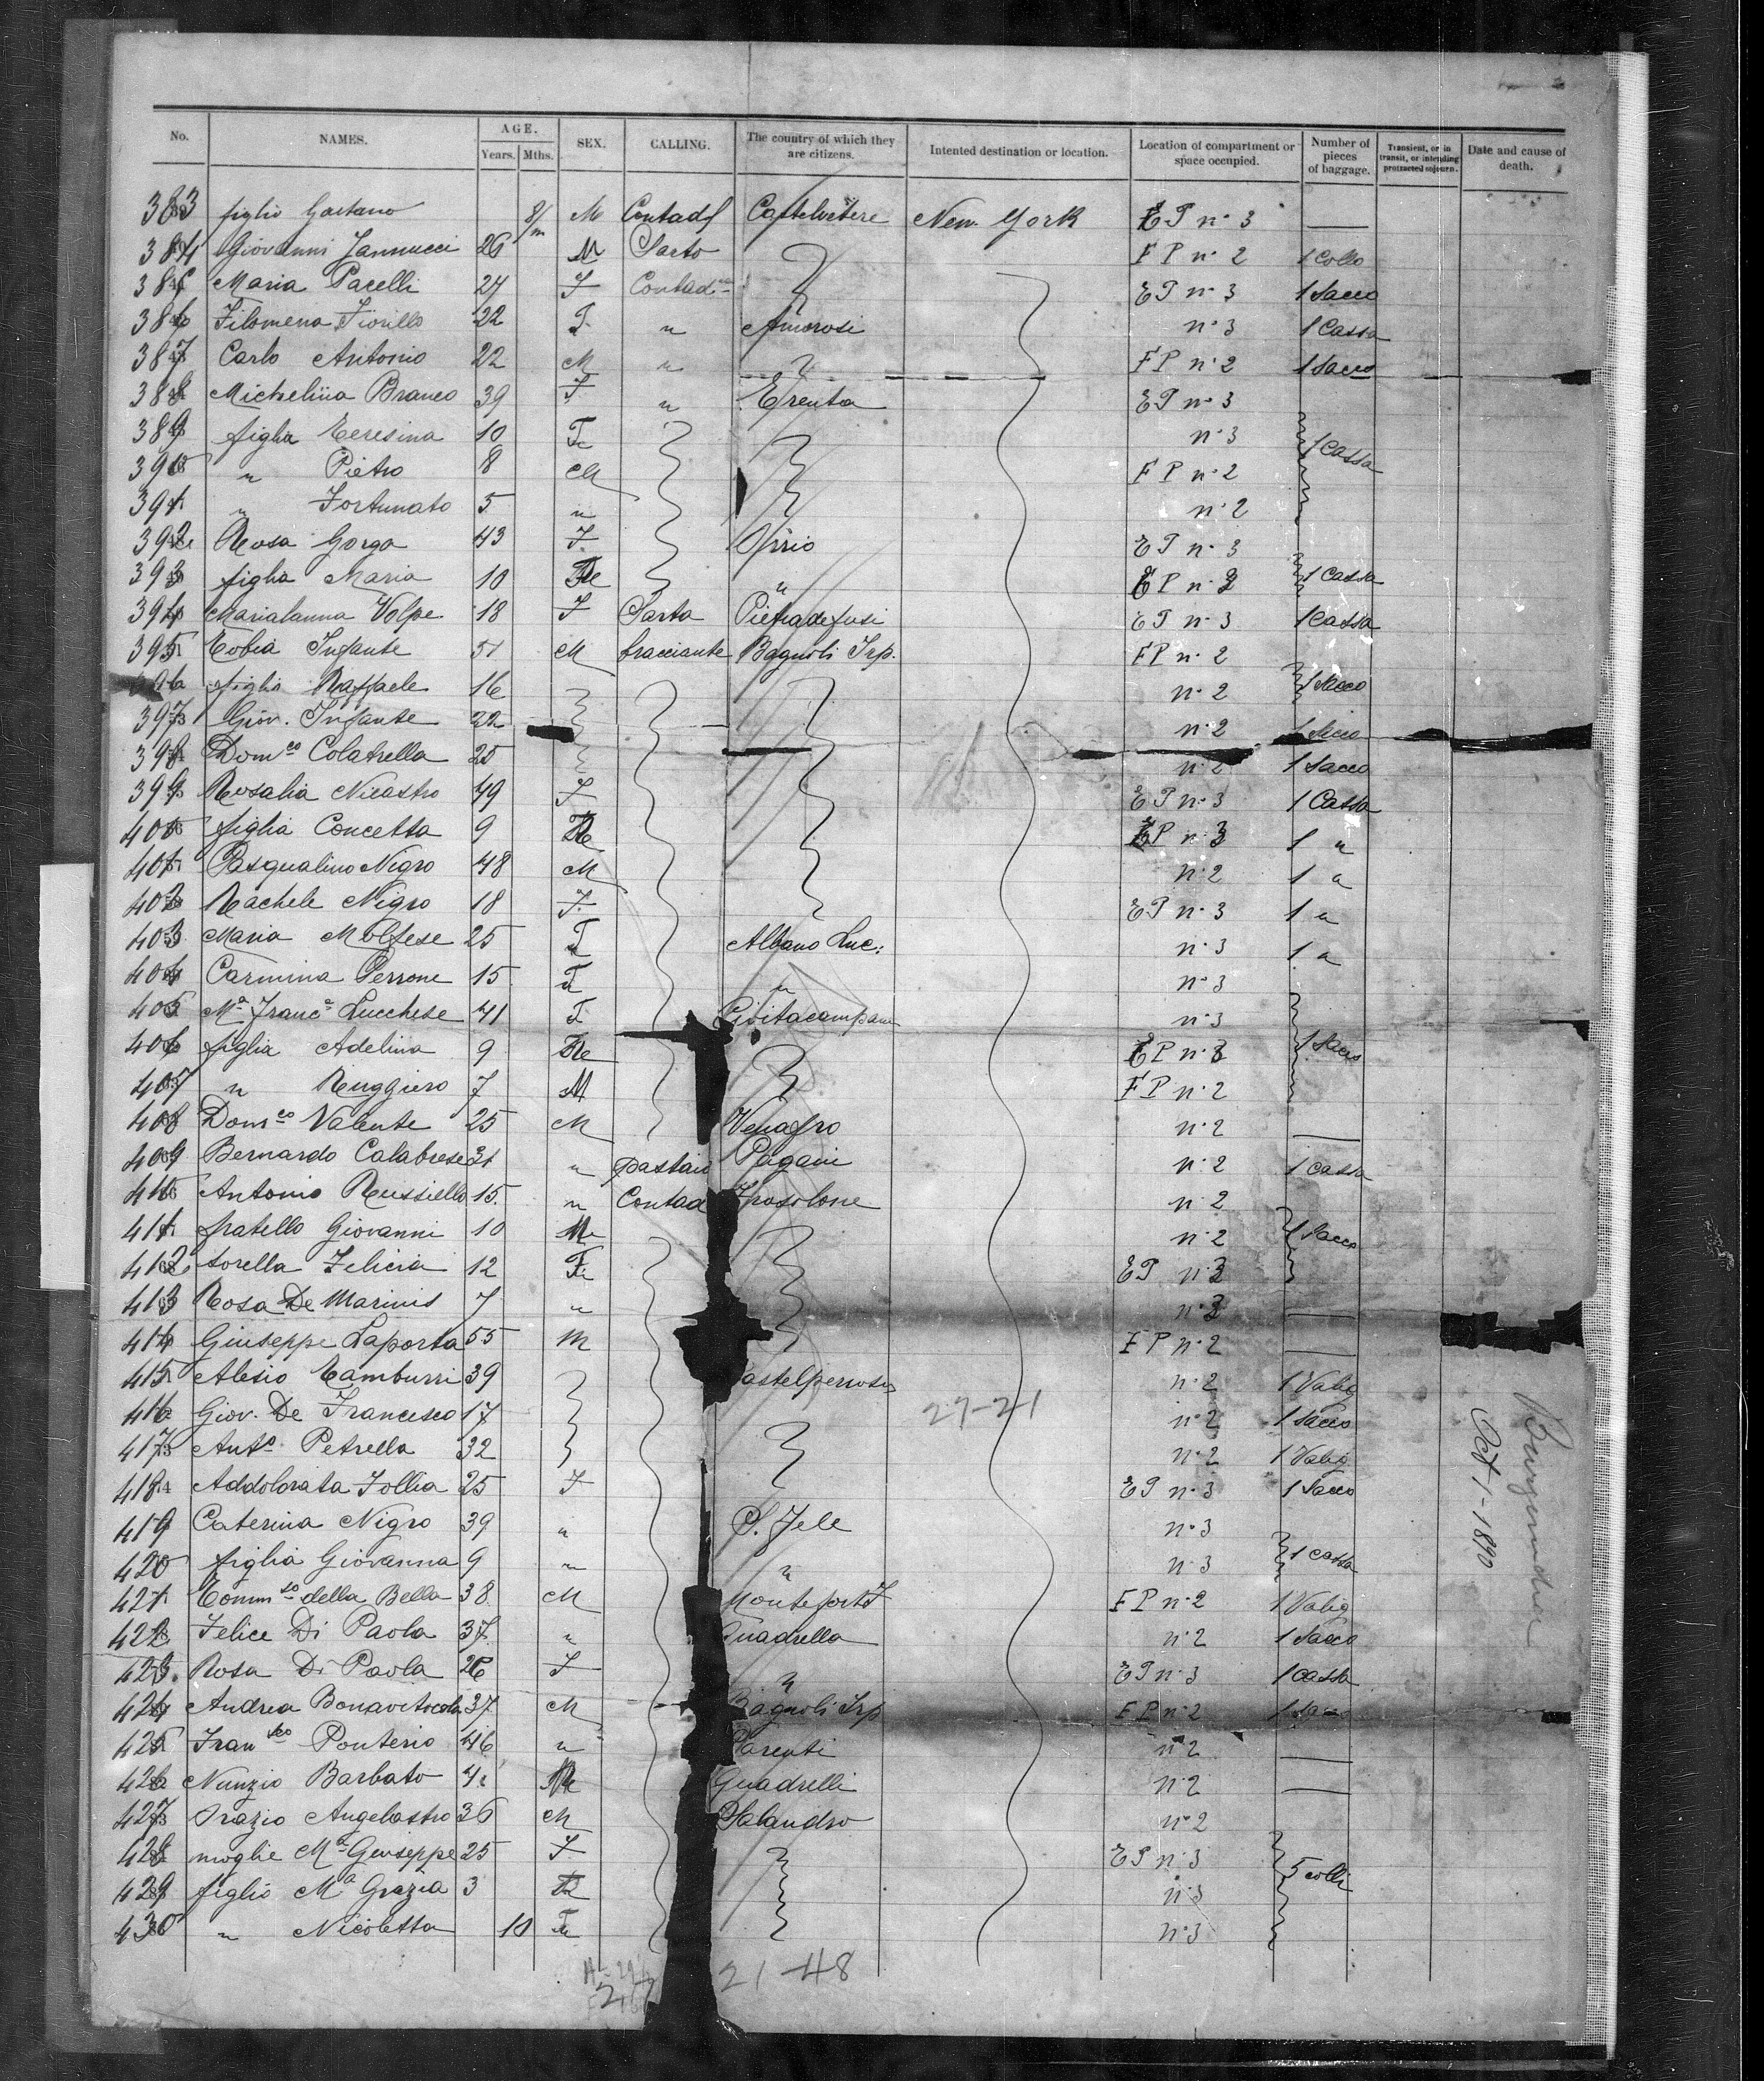 No. NAMES. AGE. SEX. CALLING. The country of which they are citizens. Intented destination or location. Location of compartment or space occupied. Number of pieces of baggage. Transient, or in transit, or intending protracted sojourn. Date and cause of death.
Years. Mths.
383 figlio Gaetano 8/m M Contad Castelvetere New York ET n. 3 —
384 Giovanni Iannucci 26 M Sarto FP n. 2 1 Collo
385 Maria Pacelli 24 F Contad ET n. 3 1 Sacco
386 Filomena Fiorillo 22 F " Amorosi n. 3 1 Cassa
387 Carlo Antonio 22 M " " FP n. 2 1 Sacco
388 Michelina Branco 39 F " Trenta ET n. 3
389 figlia Teresina 10 F n. 3 1 Cassa
390 " Pietro 8 M FP n. 2
391 " Fortunato 5 " n. 2
392 Rosa Gorga 43 F ET n. 3
393 figlia Maria 10 " n. 1 Cassa
394 Marialanna Volpe 18 F Sarta Pietradefusi ET n. 3 1 Cassa
395 Tobia Infante 51 M bracciante Bagnoli Irp. FP n. 2
396 figlio Raffaele 16 n. 2 1 Sacco
397 Giov. Infante 22 n. 2 1 Sacco
398 Dom.co Colatrella 25 n. 2 1 Sacco
399 Rosalia Nicastro 49 F ET n. 3 1 Cassa
400 figlia Concetta 9 P n. 3 1 "
401 Pasqualino Nigro 48 M n. 2 1 "
402 Rachele Nigro 18 F ET n. 3 1 "
403 Maria Molfese 25 F Albano Luc: n. 3 1 "
404 Carmina Perrone 15 F " n. 3
405 M.a Franc.a Lucchese 41 F Civitacampom n. 3
406 figlia Adelina 9 P n. 3 1 Sacco
407 " Ruggiero 7 M FP n. 2
408 Dom.co Valente 25 M Venafro n. 2 —
409 Bernardo Calabrese 31 " pastaio Pagani n. 2 1 cassa
410 Antonio Russiello 15 " Contad Frosolone n. 2
411 fratello Giovanni 10 M n. 2 1 Sacco
412 sorella Felicia 12 F ET n. 3
413 Rosa De Marinis 7 " n. 3 —
414 Giuseppe Laporta 55 M FP n. 2 —
415 Alesio Tamburri 39 astelpetroso n. 2 1 Valig
416 Giov. De Francesco 17 27-21 n. 2 1 Sacco
417 Ant.o Petrella 32 n. 2 1 Valig
418 Addolorata Follia 25 F ET n. 3 1 Sacco
419 Caterina Nigro 39 " S. Fele n. 3
420 figlia Giovanna 9 " " n. 3 1 cassa
421 Tomm.so della Bella 38 M Montefort I FP n. 2 1 Valig
422 Felice Di Paola 37 " Quadrella n. 2 1 Sacco
423 Rosa Di Paola 26 F " ET n. 3 1 cassa
424 Andrea Bonavitacola 37 M Bagnoli Irp FP n. 2 1 Sacco
425 Fran.sco Ponterio 46 " Parenti n. 2 —
426 Nunzio Barbato M Quadrelli n. 2 —
427 Orazio Angelastro 36 M Salandra n. 2
428 moglie M.a Giuseppe 25 F ET n. 3
429 figlio M.a Grazia 3 F n. 3 5 colli
430 " Nicoletta 10 F n. 3
21-48
Burgundia
Oct 1-1890